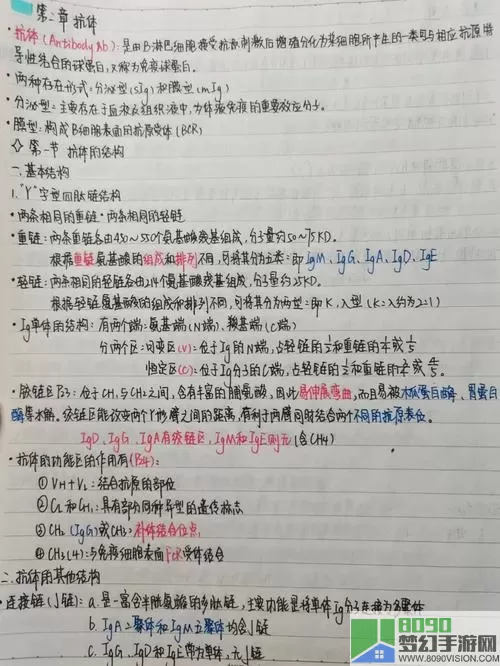 第二章 抗体
·抗体(Antibody Ab):是由B淋巴细胞接受抗原刺激后增殖分化为浆细胞所产生的一类可与相应抗原特
异性结合的球蛋白,又称为免疫球蛋白。
·两种存在形式:分泌型(sIg)和膜型(mIg)
·分泌型:主要存在于血液及组织液中,为体液免疫的重要效应分子。
·膜型:构成B细胞表面的抗原受体(BCR)
◇ 第一节 抗体的结构
一.基本结构
1."Y"字型四肽链结构
·两条相同的重链·两条相同的轻链
·重链:两条重链各由450~550个氨基酸残基组成,分子量约50~75KD.
根据重链氨基酸的组成和排列不同,可将其分为五类:即IgM、IgG、IgA、IgD、IgE
·轻链:两条相同的轻链各由214个氨基酸残基组成,分子量约25KD.
根据轻链氨基酸的组成和排列不同,可将其分为两型:即K,λ型(K:λ约为2:1)
·Ig单体的结构:有两个端:氨基端(N端)、羧基端(C端)
分两个区:可变区(V):位于Ig的N端,占轻链的1/2和重链的1/4或1/5
恒定区(C):位于Ig分子的C端,占轻链的1/2和重链的3/4或4/5.
·铰链区 P23:位于CH1与CH2之间,含有丰富的脯氨酸,因此易伸展弯曲,而且易被木瓜蛋白酶、胃蛋白
酶等水解。铰链区能改变两个Y形臂之间的距离,有利于两臂同时结合两个不同的抗原表位。
IgD、IgG、IgA有铰链区,IgM和IgE则无(含CH4)
·抗体的功能区的作用有(P24):
① VH+VL:结合抗原的部位
② CL和CH1:具有部分同种异型的遗传标志
③ CH2(IgG)或CH3:补体结合位点
④ CH3(4):与免疫细胞表面FcR受体结合
二.抗体的其他结构
·连接链(J链):a.是一富含半胱氨酸的多肽链,主要功能是将单体Ig分子连接为多聚体
b.IgA二聚体和IgM五聚体均含J链
c.IgG、IgD和IgE常为单体,无J链
8090
梦幻手游网
WWW.8090VISION.COM